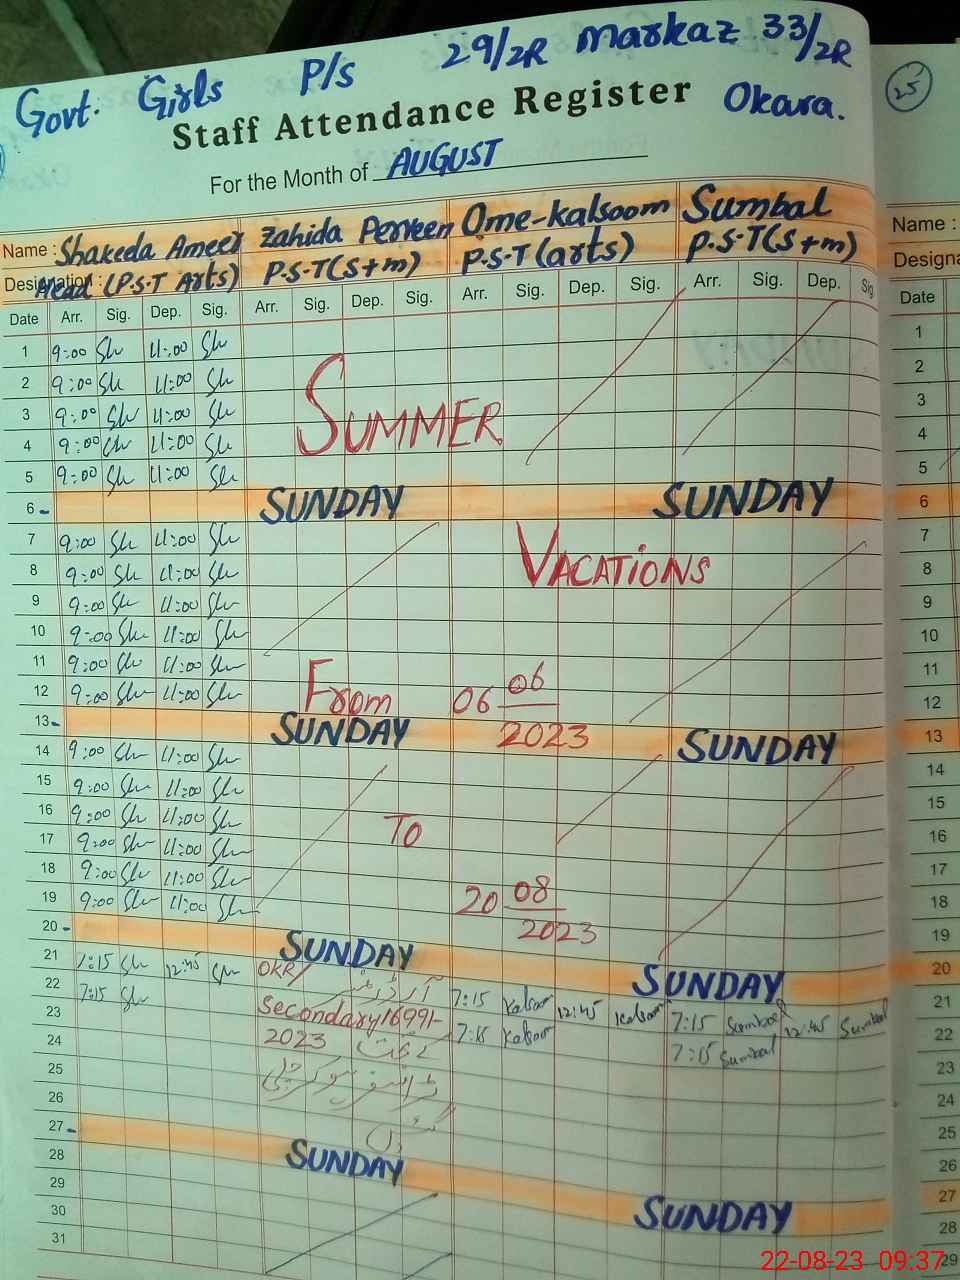 Govt. Girls P/s 29/2R markaz 33/2R
Okara.
Staff Attendance Register
For the Month of AUGUST
25
Name : Shakeda Ameer Zahida Perveen Ome-kalsoom Sumbal
Designation : Head (P.S.T Arts) P.S.T(S+m) P.S.T(arts) P.S.T(S+m)
Date Arr. Sig. Dep. Sig. Arr. Sig. Dep. Sig. Arr. Sig. Dep. Sig. Arr. Sig. Dep. Sig.
1 9:00 Sh 11:00 Sh
2 9:00 Sh 11:00 Sh
3 9:00 Sh 11:00 Sh
4 9:00 Sh 11:00 Sh
SUMMER
5 9:00 Sh 11:00 Sh
6 - SUNDAY SUNDAY
7 9:00 Sh 11:00 Sh
8 9:00 Sh 11:00 Sh
VACATiONS
9 9:00 Sh 11:00 Sh
10 9:00 Sh 11:00 Sh
11 9:00 Sh 11:00 Sh
12 9:00 Sh 11:00 Sh
From 06 06
2023
13 - SUNDAY SUNDAY
14 9:00 Sh 11:00 Sh
15 9:00 Sh 11:00 Sh
16 9:00 Sh 11:00 Sh
TO
17 9:00 Sh 11:00 Sh
18 9:00 Sh 11:00 Sh
19 9:00 Sh 11:00 Sh
20 08
2023
20 - SUNDAY SUNDAY
21 7:15 Sh 12:45 Sh OKR/ آرڈر نمبر 7:15 Kalsoom 12:45 Kalsoom 7:15 Sumbal 12:45 Sumbal
22 7:15 Sh Secondary/6991- 7:15 Kalsoom 7:15 Sumbal
23 2023 کے تحت
24 ٹرانسفر ہو کر چلی
25 گئیں
26
27 - SUNDAY SUNDAY
28
29
30
31
Name :
Designa
Date
1
2
3
4
5
6
7
8
9
10
11
12
13
14
15
16
17
18
19
20
21
22
23
24
25
26
27
28
29
22-08-23 09:37